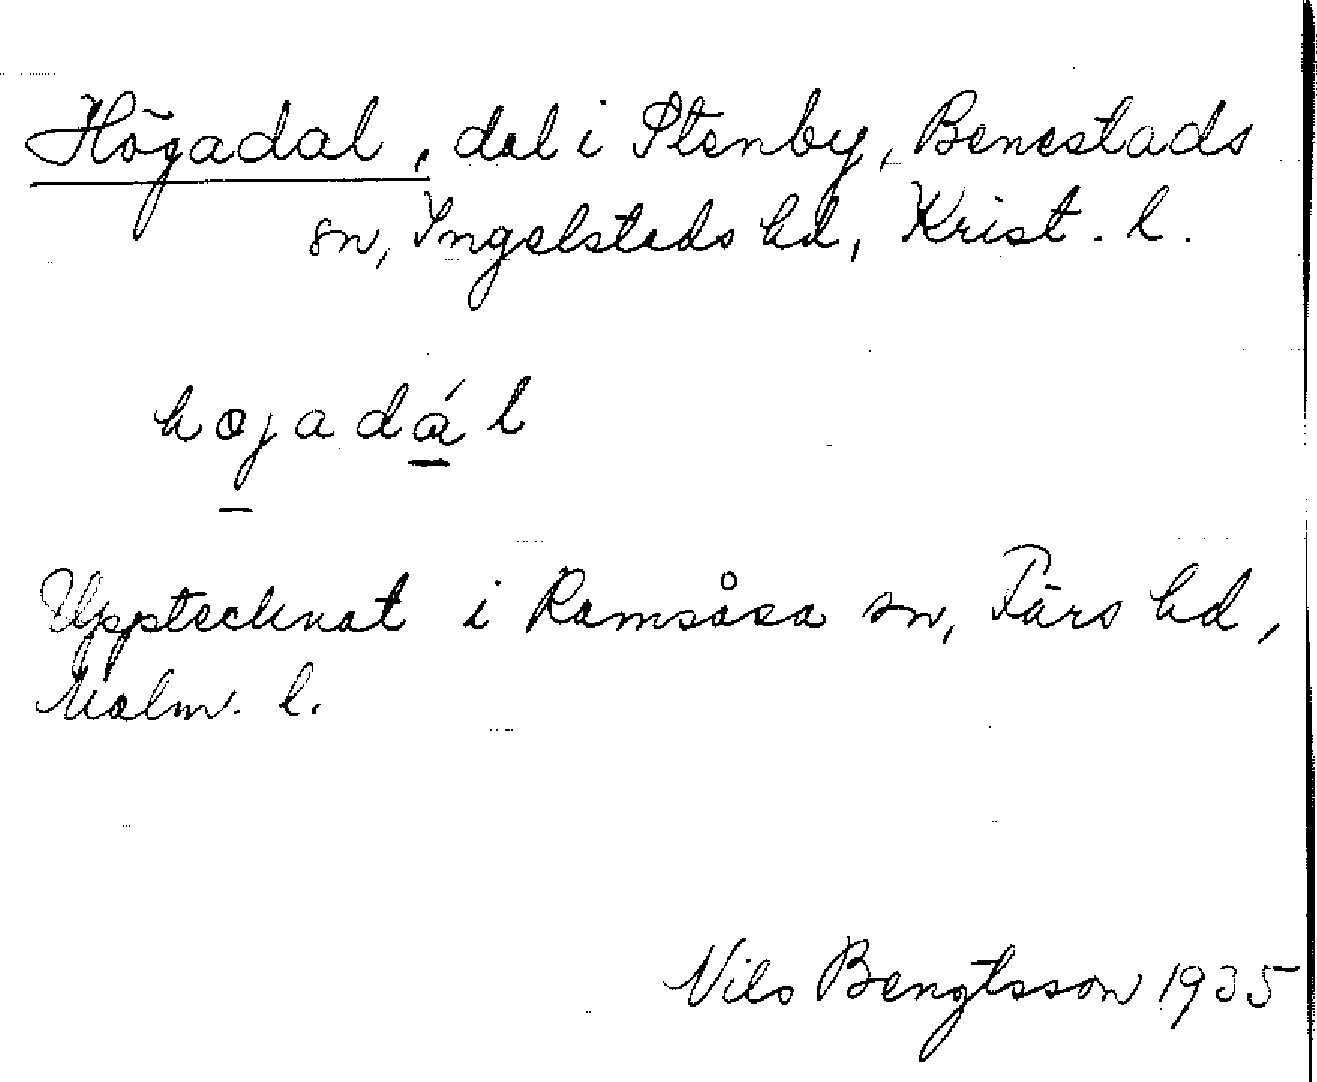 Högadal, dal i Stenby, Benestads
sn, Ingelstads hd, Krist. l.
hojadál
Upptecknat i Ramsåsa sn, Färs hd,
Malm. l.
Nils Bengtsson 1935